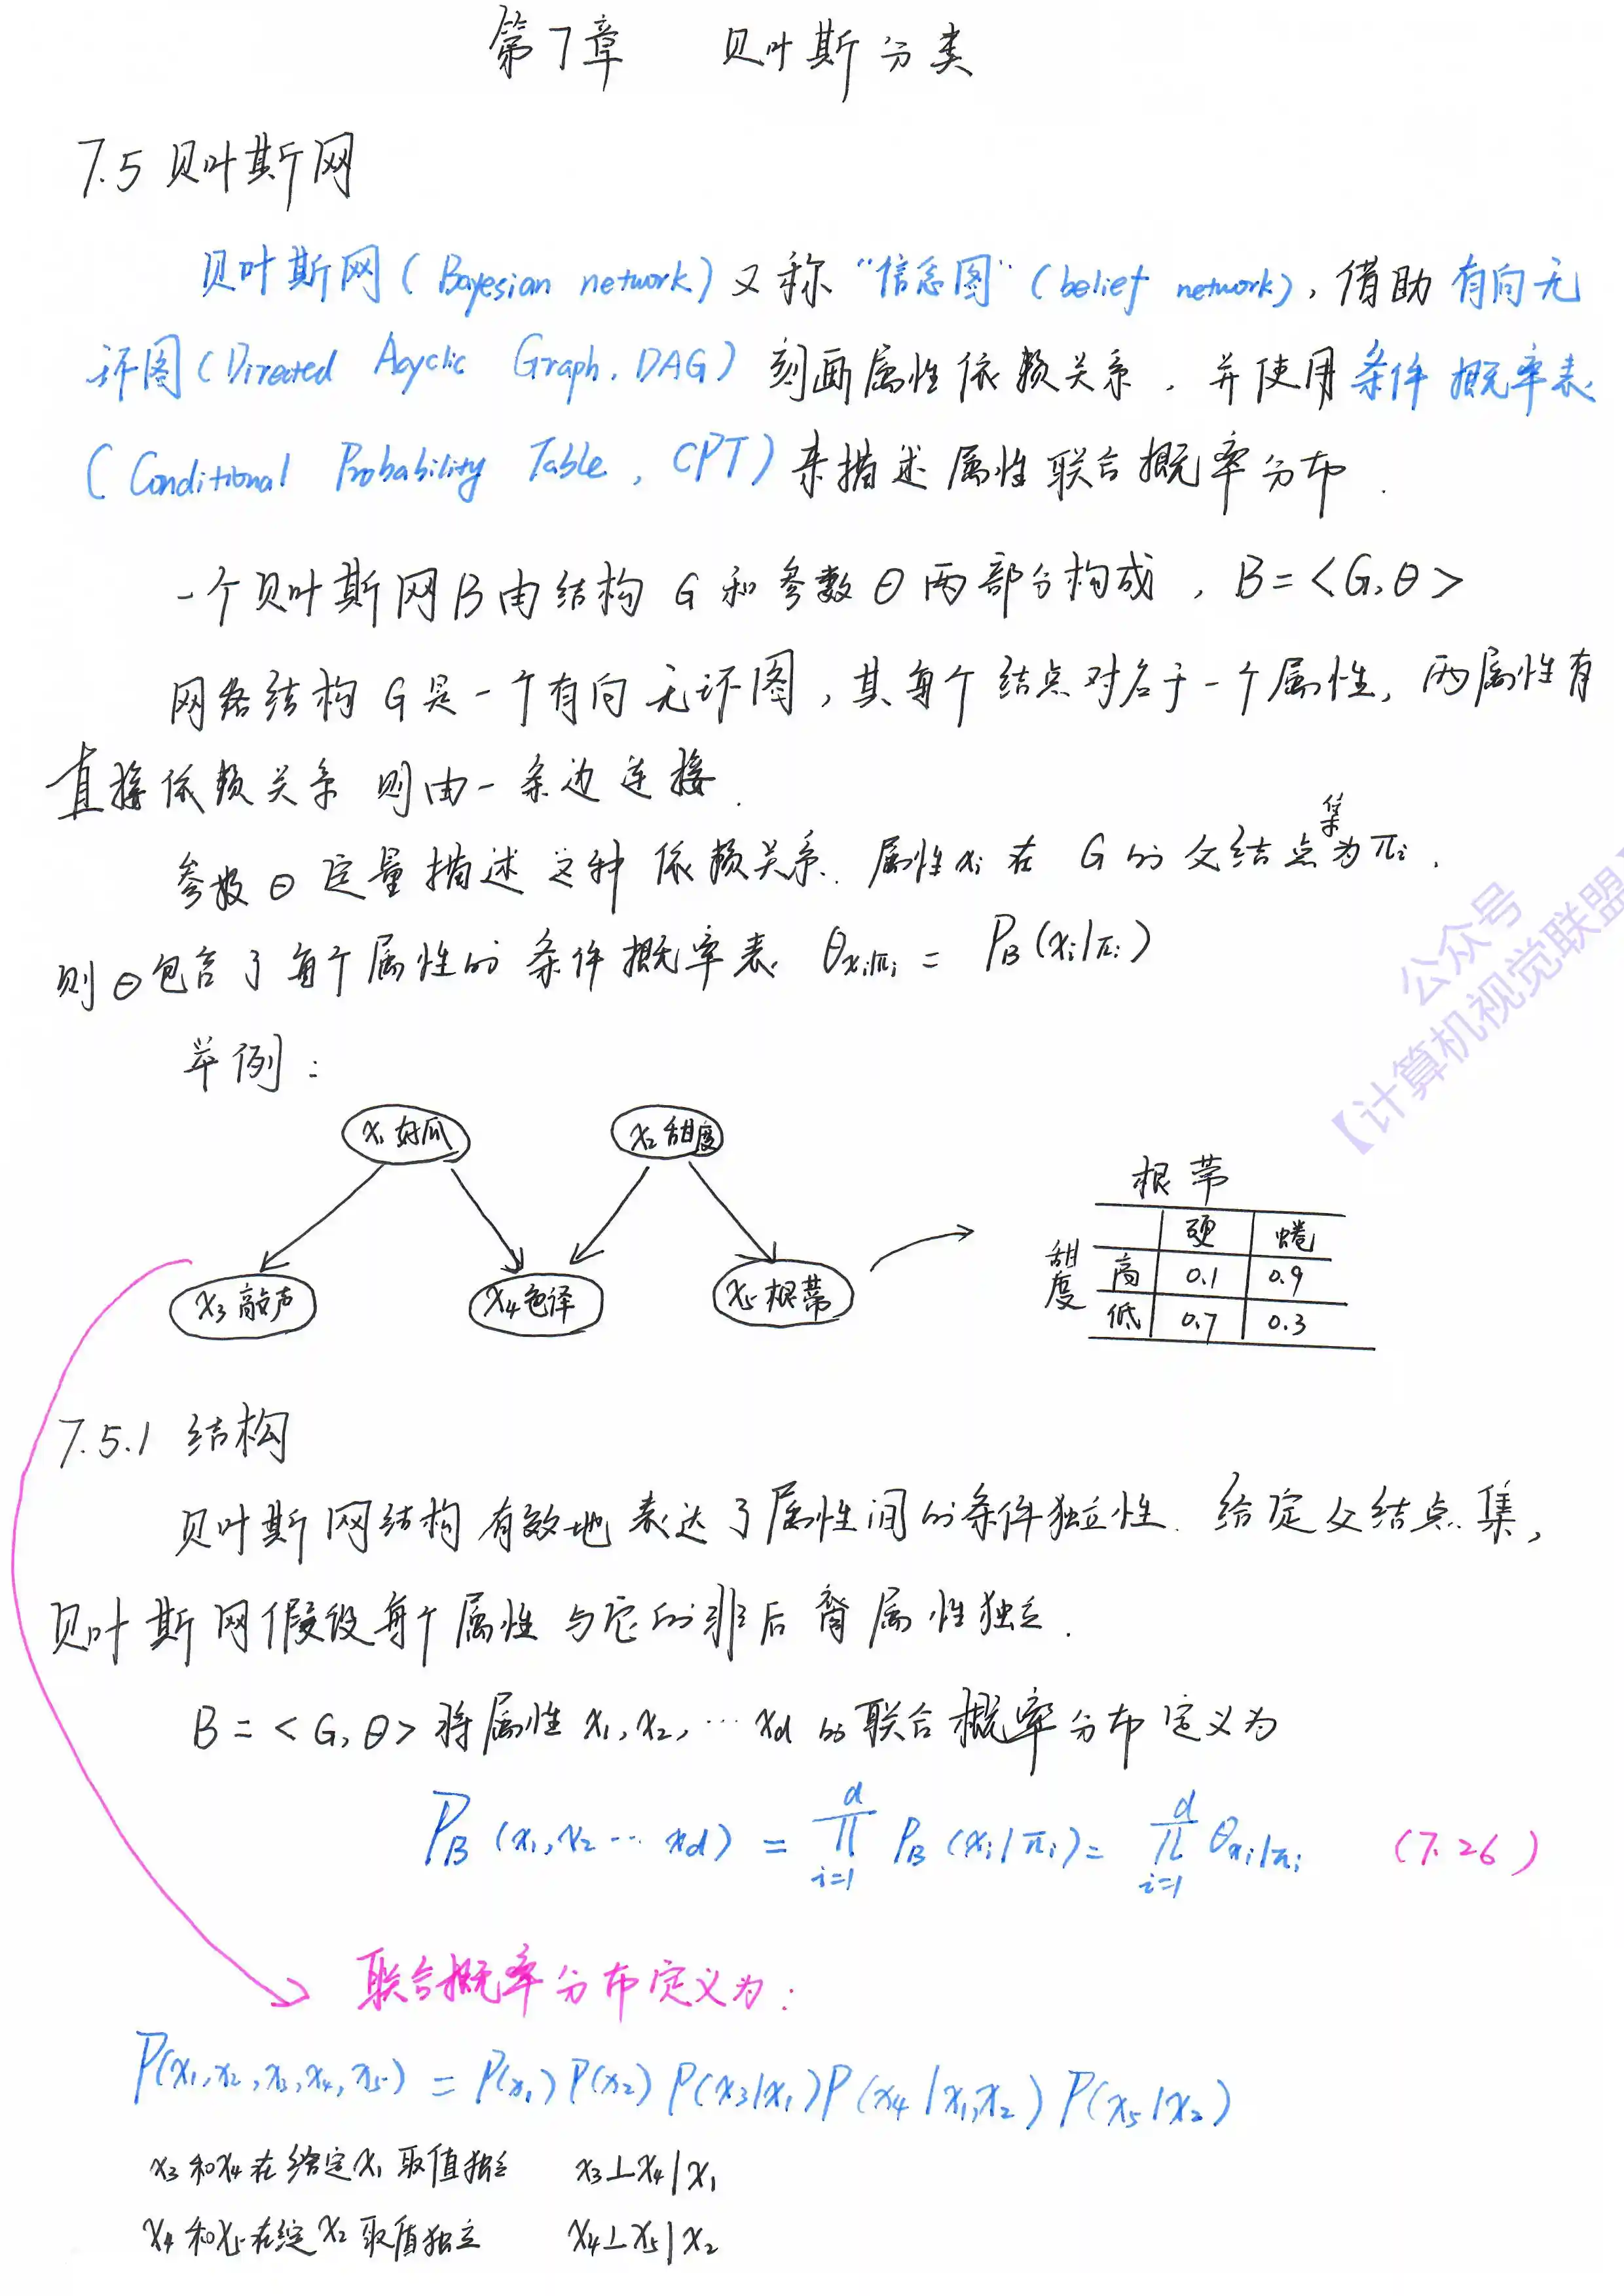 第7章 贝叶斯分类
7.5 贝叶斯网
贝叶斯网(Bayesian network)又称“信念图”(belief network),借助有向无
环图(Directed Acyclic Graph, DAG)刻画属性依赖关系,并使用条件概率表
(Conditional Probability Table, CPT)来描述属性联合概率分布.
一个贝叶斯网B由结构G和参数θ两部分构成, B=<G,θ>
网络结构G是一个有向无环图,其每个结点对应于一个属性,两属性有
直接依赖关系则由一条边连接.
参数θ定量描述这种依赖关系.属性xi在G的父结点集为πi.
则θ包含了每个属性的条件概率表 θxi|πi = PB(xi|πi)
举例:
x1好瓜 x2甜度
x3敲声 x4色泽 x5根蒂
根蒂
硬 蜷
甜度
高 0.1 0.9
低 0.7 0.3
7.5.1 结构
贝叶斯网结构有效地表达了属性间的条件独立性.给定父结点集,
贝叶斯网假设每个属性与它的非后裔属性独立.
B=<G,θ>将属性x1,x2,…xd的联合概率分布定义为
PB(x1,x2…xd) = ∏_{i=1}^{d} PB(xi|πi) = ∏_{i=1}^{d} θxi|πi (7.26)
联合概率分布定义为:
P(x1,x2,x3,x4,x5) = P(x1)P(x2)P(x3|x1)P(x4|x1,x2)P(x5|x2)
x3和x4在给定x1取值独立 x3⊥x4|x1
x4和x5在给定x2取值独立 x4⊥x5|x2
公众号
【计算机视觉联盟】